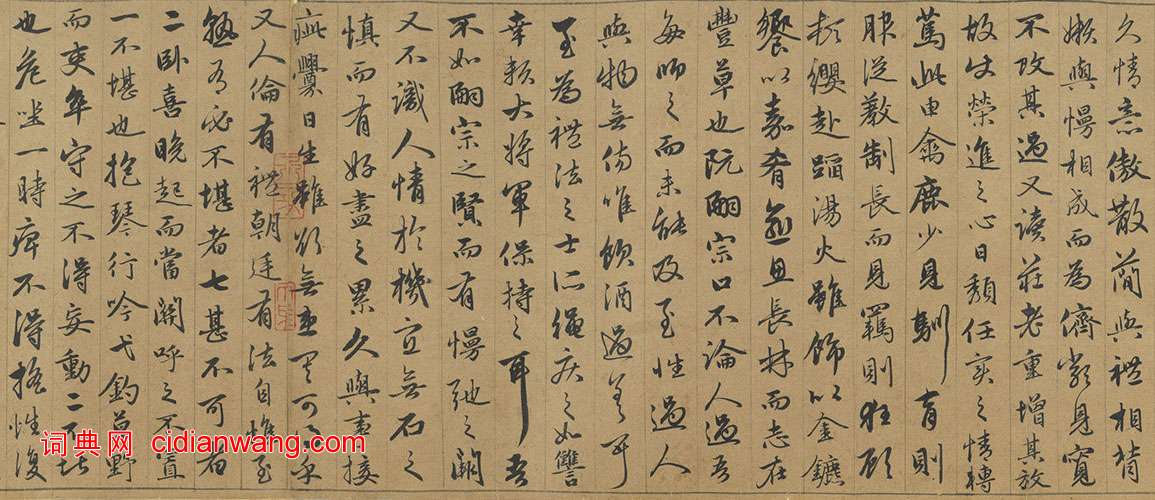 久情意傲散簡與禮相背
嬾與慢相成而為儕類見寬
不攻其過又讀莊老重增其放
故使榮進之心日頹任實之情轉
篤此由禽鹿少見馴育則
服從教制長而見羈則狂顧
頓纓赴蹈湯火雖飾以金鑣
饗以嘉肴逾思長林而志在
豐草也阮嗣宗口不論人過吾
每師之而未能及至性過人
與物無傷唯飲酒過差耳
至為禮法之士所繩疾之如讎
幸賴大將軍保持之耳吾
不如嗣宗之賢而有慢弛之闕
又不識人情於機宜無石之
慎而有好盡之累久與事接
疵釁日生雖欲無患其可得乎
又人倫有禮朝廷有法自惟至
熟有必不堪者七甚不可者
二卧喜晚起而當關呼之不置
一不堪也抱琴行吟弋釣草野
而吏卒守之不得妄動二不堪
也危坐一時痹不得搖性復
词典网 cidianwang.com